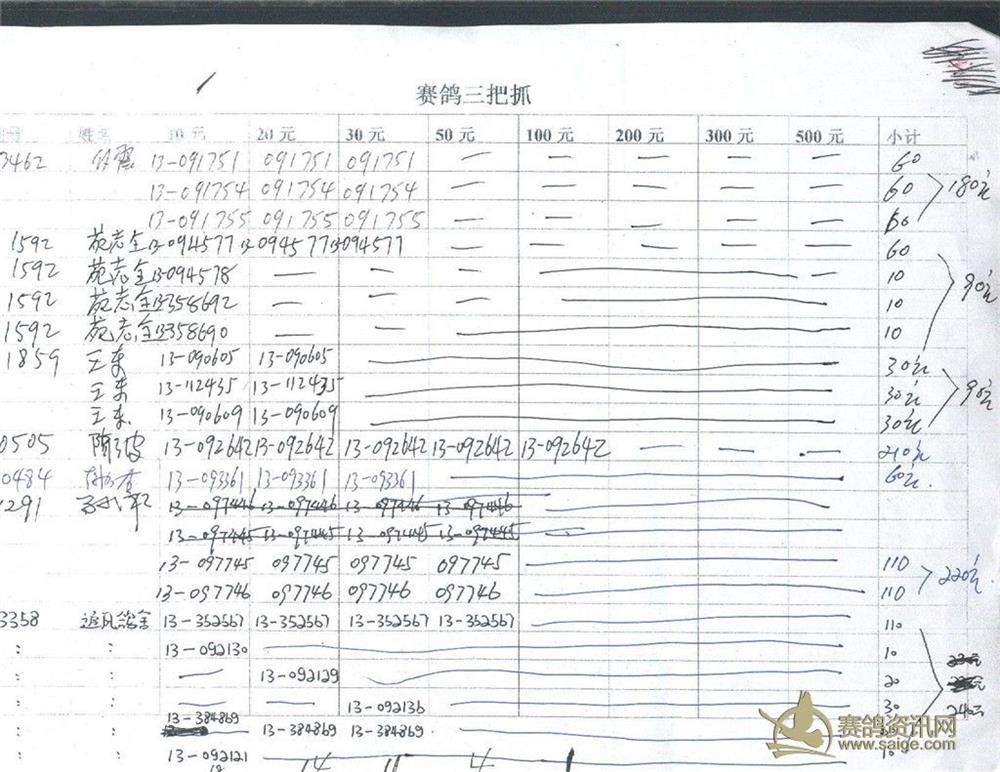 赛鸽三把抓
姓名 10元 20元 30元 50元 100元 200元 300元 500元 小计
3462 13-091751 091751 091751 — — — — — 60
13-091754 091754 091754 — — — — — 60 180元
13-091755 091755 091755 — — — — — 60
1592 苑志全 13-094577 13-094577 13-094577 — — — — — 60
1592 苑志全 13-094578 — — — — 10
1592 苑志全 13-358692 — — — 10 90元
1592 苑志全 13-358690 — — 10
1859 王东 13-090605 13-090605 30元
王东 13-112435 13-112435 30元 90元
王东 13-090609 13-090609 30元
0505 13-092642 13-092642 13-092642 13-092642 13-092642 — — — 210元
0484 13-093361 13-093361 13-093361 60元
1291 13-097446 13-097446 13-097446 13-097446
13-097445 13-097445 13-097445 13-097445
13-097745 097745 097745 097745 110
13-097746 097746 097746 097746 110 220元
3358 13-352567 13-352567 13-352567 13-352567 110
: : 13-092130 10
: : — 13-092129 20
: : — — 13-092136 30 240元
: : 13-384869 13-384869 13-384869
: : 13-092121 10
14 11 4 1
赛鸽资讯网
www.saige.com